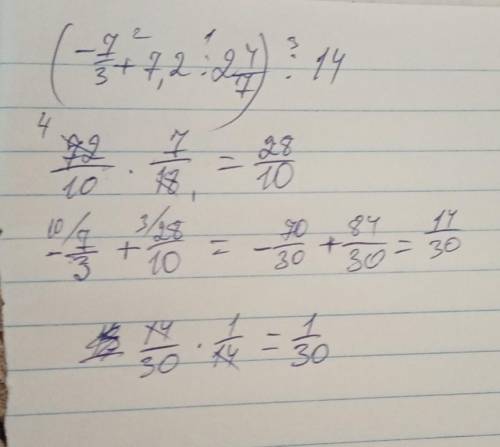 (-7/3 + 7,2 : 2 4/7) : 14
72/10 · 7/18 = 28/10
-7/3 + 28/10 = -70/30 + 84/30 = 14/30
14/30 · 1/14 = 1/30